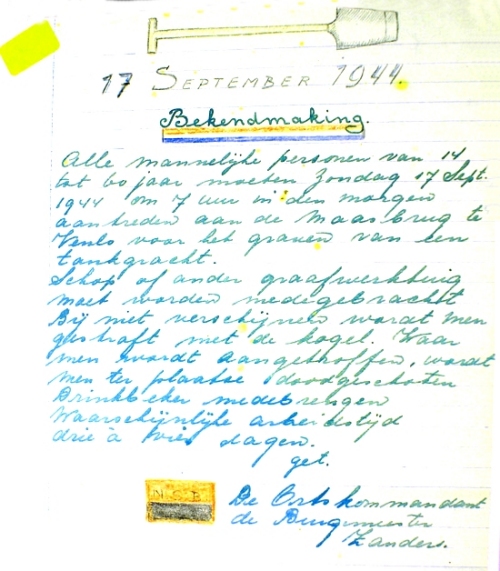 17 September 1944.
Bekendmaking.
Alle mannelijke personen van 14
tot 60 jaar moeten Zondag 17 Sept.
1944 om 7 uur in den morgen
aantreden aan de Maasbrug te
Venlo voor het graven van een
tankgracht.
Schop of ander graafwerktuig
moet worden medegebracht
Bij niet verschijnen wordt men
gestraft met de kogel. Waar
men wordt aangetroffen, wordt
men ter plaatse doodgeschoten
Drinkbeker medebrengen
Waarschijnlijke arbeidstijd
drie à vier dagen.
get.
N.S.B
De Ortskommandant
de Burgemeester
Zanders.